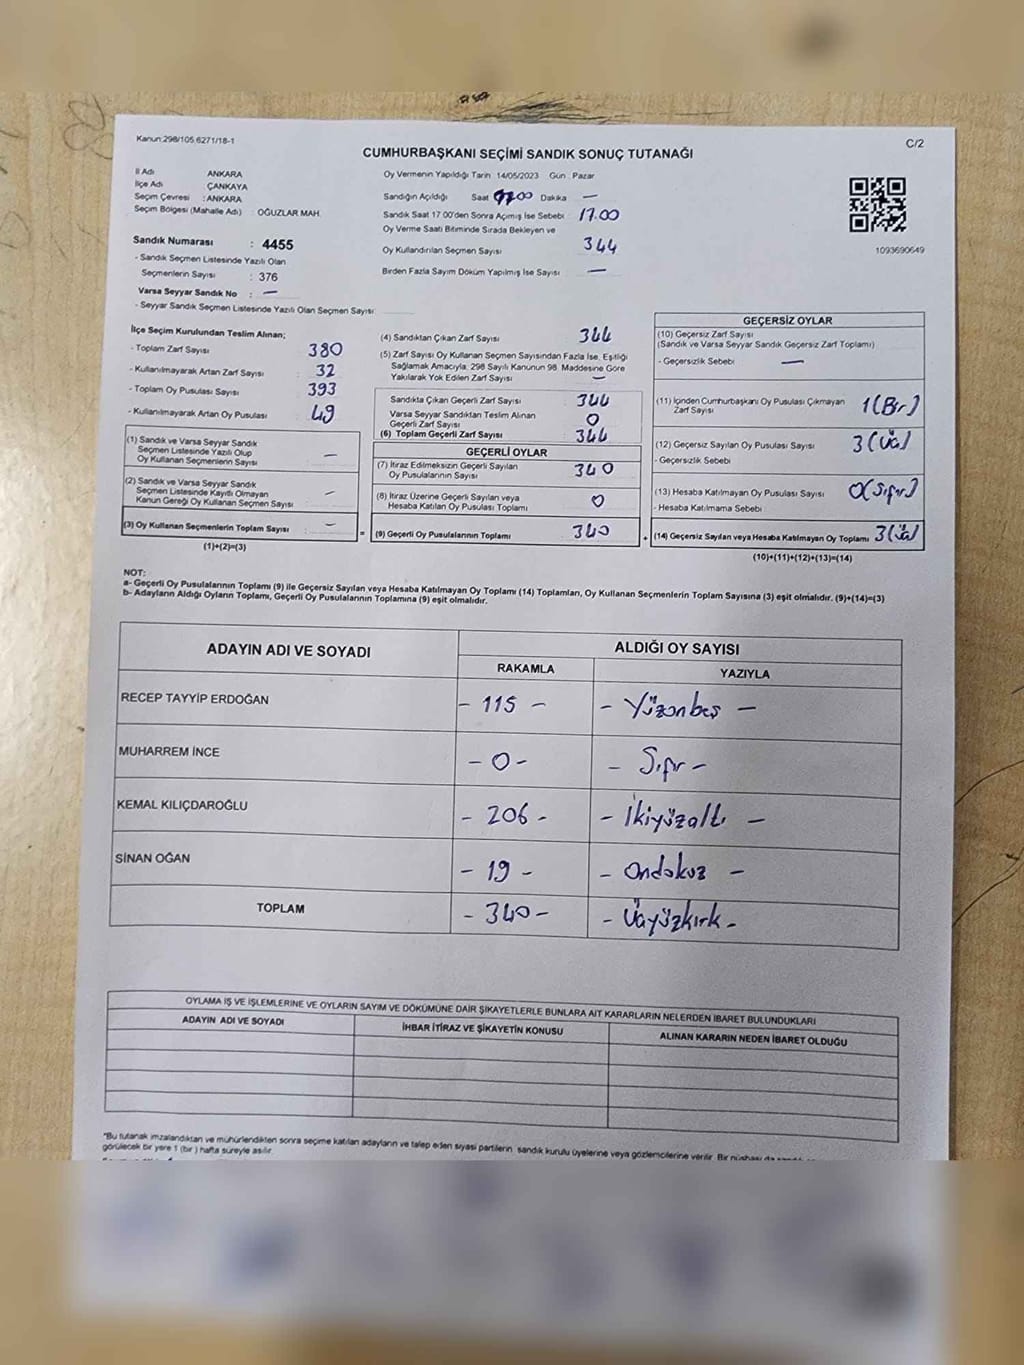 Kanun:298/105,6271/18-1
C/2
CUMHURBAŞKANI SEÇİMİ SANDIK SONUÇ TUTANAĞI
İl Adı ANKARA
İlçe Adı ÇANKAYA
Seçim Çevresi : ANKARA
Seçim Bölgesi (Mahalle Adı) : OĞUZLAR MAH.
Sandık Numarası : 4455
- Sandık Seçmen Listesinde Yazılı Olan
Seçmenlerin Sayısı : 376
Varsa Seyyar Sandık No : —
- Seyyar Sandık Seçmen Listesinde Yazılı Olan Seçmen Sayısı
Oy Vermenin Yapıldığı Tarih 14/05/2023 Gün : Pazar
Sandığın Açıldığı Saat 17:00 Dakika —
Sandık Saat 17.00'den Sonra Açımış İse Sebebi : 17.00
Oy Verme Saati Bitiminde Sırada Bekleyen ve
Oy Kullandırılan Seçmen Sayısı 344
Birden Fazla Sayım Döküm Yapılmış İse Sayısı —
1093690649
İlçe Seçim Kurulundan Teslim Alınan;
- Toplam Zarf Sayısı 380
- Kullanılmayarak Artan Zarf Sayısı 32
- Toplam Oy Pusulası Sayısı 393
- Kullanılmayarak Artan Oy Pusulası 49
(1) Sandık ve Varsa Seyyar Sandık
Seçmen Listesinde Yazılı Olup
Oy Kullanan Seçmenlerin Sayısı —
(2) Sandık ve Varsa Seyyar Sandık
Seçmen Listesinde Kayıtlı Olmayan
Kanun Gereği Oy Kullanan Seçmen Sayısı —
(3) Oy Kullanan Seçmenlerin Toplam Sayısı —
(1)+(2)=(3)
(4) Sandıktan Çıkan Zarf Sayısı 344
(5) Zarf Sayısı Oy Kullanan Seçmen Sayısından Fazla İse, Eşitliği
Sağlamak Amacıyla, 298 Sayılı Kanunun 98. Maddesine Göre
Yakılarak Yok Edilen Zarf Sayısı —
Sandıkta Çıkan Geçerli Zarf Sayısı 344
Varsa Seyyar Sandıktan Teslim Alınan
Geçerli Zarf Sayısı 0
(6) Toplam Geçerli Zarf Sayısı 344
GEÇERLİ OYLAR
(7) İtiraz Edilmeksizin Geçerli Sayılan
Oy Pusulalarının Sayısı 340
(8) İtiraz Üzerine Geçerli Sayılan veya
Hesaba Katılan Oy Pusulası Toplamı 0
= (9) Geçerli Oy Pusulalarının Toplamı 340 +
GEÇERSİZ OYLAR
(10) Geçersiz Zarf Sayısı
(Sandık ve Varsa Seyyar Sandık Geçersiz Zarf Toplamı)
- Geçersizlik Sebebi —
(11) İçinden Cumhurbaşkanı Oy Pusulası Çıkmayan
Zarf Sayısı 1 (Bir)
(12) Geçersiz Sayılan Oy Pusulası Sayısı 3 (Üç)
- Geçersizlik Sebebi
(13) Hesaba Katılmayan Oy Pusulası Sayısı 0 (Sıfır)
- Hesaba Katılmama Sebebi
(14) Geçersiz Sayılan veya Hesaba Katılmayan Oy Toplamı 3 (Üç)
(10)+(11)+(12)+(13)=(14)
NOT:
a- Geçerli Oy Pusulalarının Toplamı (9) ile Geçersiz Sayılan veya Hesaba Katılmayan Oy Toplamı (14) Toplamları, Oy Kullanan Seçmenlerin Toplam Sayısına (3) eşit olmalıdır. (9)+(14)=(3)
b- Adayların Aldığı Oyların Toplamı, Geçerli Oy Pusulalarının Toplamına (9) eşit olmalıdır.
ADAYIN ADI VE SOYADI
ALDIĞI OY SAYISI
RAKAMLA YAZIYLA
RECEP TAYYİP ERDOĞAN - 115 - - Yüzonbeş -
MUHARREM İNCE - 0 - - Sıfır -
KEMAL KILIÇDAROĞLU - 206 - - İkiyüzaltı -
SİNAN OĞAN - 19 - - Ondokuz -
TOPLAM - 340 - - Üçyüzkırk -
OYLAMA İŞ VE İŞLEMLERİNE VE OYLARIN SAYIM VE DÖKÜMÜNE DAİR ŞİKAYETLERLE BUNLARA AİT KARARLARIN NELERDEN İBARET BULUNDUKLARI
ADAYIN ADI VE SOYADI İHBAR İTİRAZ VE ŞİKAYETİN KONUSU ALINAN KARARIN NEDEN İBARET OLDUĞU
*Bu tutanak imzalandıktan ve mühürlendikten sonra seçime katılan adayların ve talep eden siyasi partilerin sandık kurulu üyelerine veya gözlemcilerine verilir. Bir nüshası da
görülecek bir yere 1 (bir) hafta süreyle asılır.